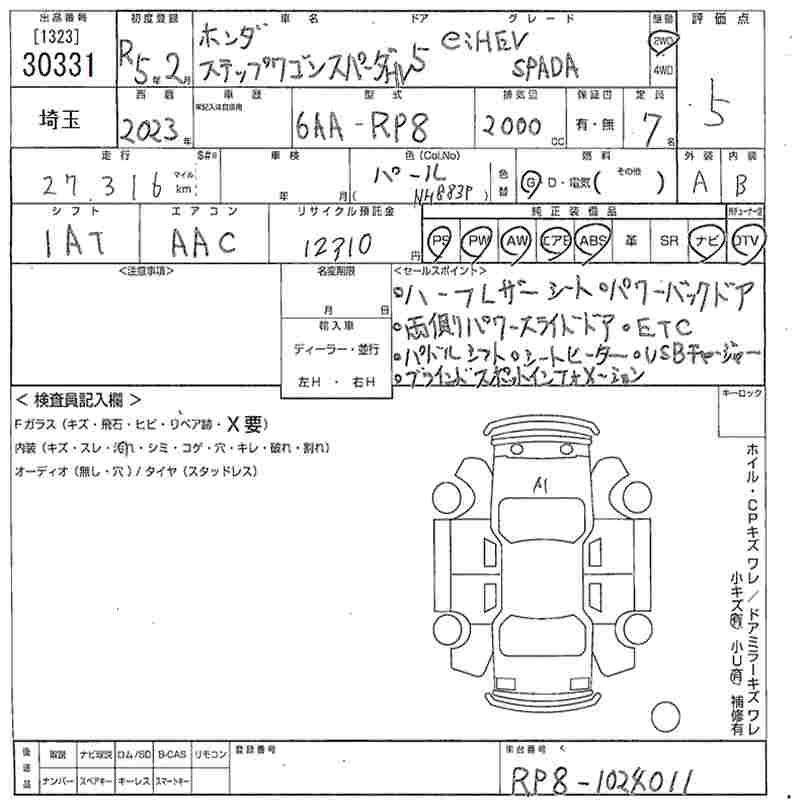 出品番号 初度登録 車名 ドア グレード 駆動 評価点
[1323]
30331
R5年2月
ホンダ
ステップワゴンスパーダ 5
e:HEV
SPADA
2WD
4WD
5
埼玉
西暦 車歴 型式 排気量 保証書 定員
未記入は自家用
2023年
6AA-RP8
2000 CC
有・無
7名
走行 S#® 車検 色(Col.No) 燃料 外装 内装
27,316 マイル km
年 月
パール
(NH883P)
色替
G・D・電気( その他 )
A B
シフト エアコン リサイクル預託金 純正装備品
IAT AAC 12310円
PS PW AW エアB ABS 革 SR ナビ DTV
<注意事項>
名変期限
月 日
輸入車
ディーラー・並行
左H ・ 右H
<セールスポイント>
•ハーフレザーシート•パワーバックドア
•両側パワースライドドア•ETC
•パドルシフト•シートヒーター•USBチャージャー
•ブラインドスポットインフォメーション
< 検査員記入欄 >
Fガラス(キズ・飛石・ヒビ・リペア跡・X要)
内装(キズ・スレ・汚れ・シミ・コゲ・穴・キレ・破れ・割れ)
オーディオ(無し・穴)/タイヤ(スタッドレス)
キーロック
A1
ホイル・CPキズワレ/ドアミラーキズワレ
小キズ有 小U有 補修有
後送品
取説 ナビ取説 ロム/SD B-CAS リモコン
ナンバー スペアキー キーレス スマートキー
登録番号
車台番号
RP8-1024011